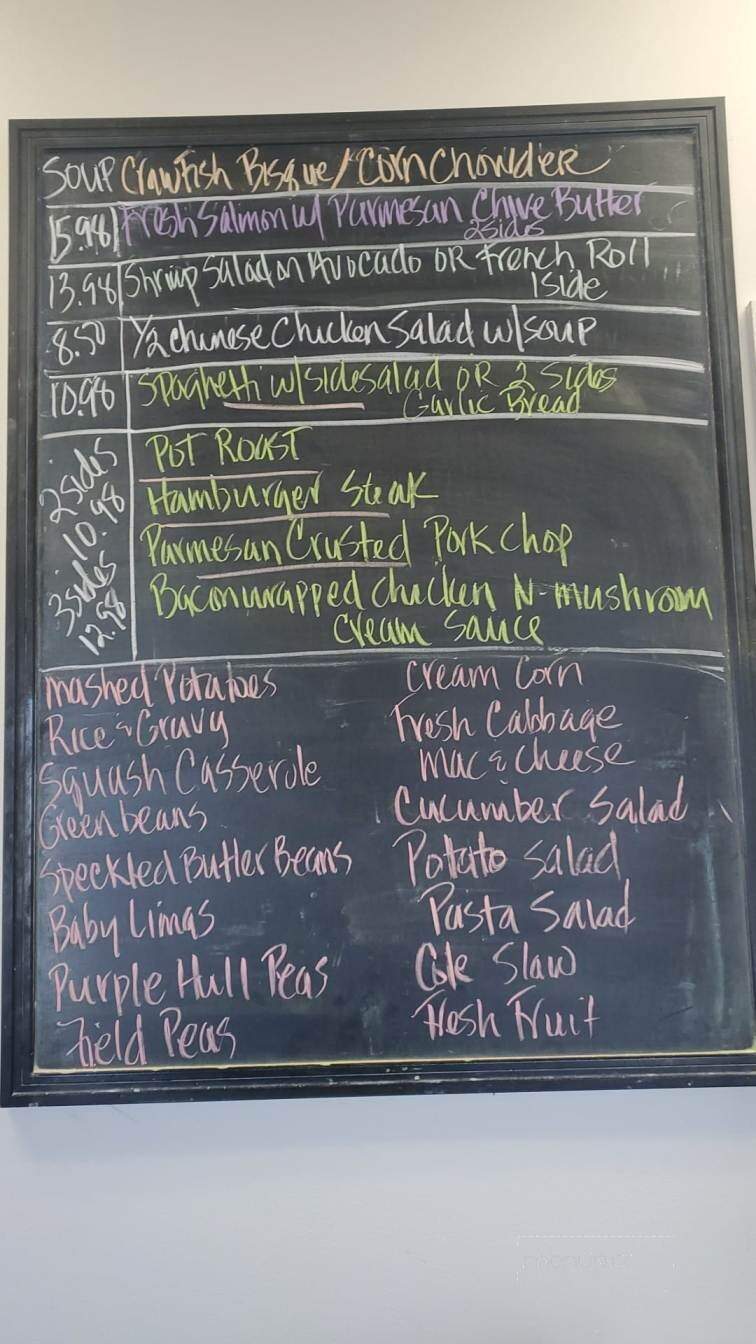 Soup Crawfish Bisque/Corn Chowder
15.98 Fresh Salmon w/ Parmesan Chive Butter
2 sides
13.98 Shrimp Salad on Avocado OR French Roll
1 side
8.50 1/2 chinese Chicken Salad w/soup
10.98 Spaghetti w/side salad OR 2 sides
Garlic Bread
2 sides
10.98
3 sides
12.98
Pot Roast
Hamburger Steak
Parmesan Crusted Pork Chop
Bacon wrapped chicken N-mushroom
cream sauce
Mashed Potatoes
Rice & Gravy
Squash Casserole
Green beans
Speckled Butter Beans
Baby Limas
Purple Hull Peas
Field Peas
Cream Corn
Fresh Cabbage
Mac & cheese
Cucumber Salad
Potato Salad
Pasta Salad
Cole Slaw
Fresh Fruit